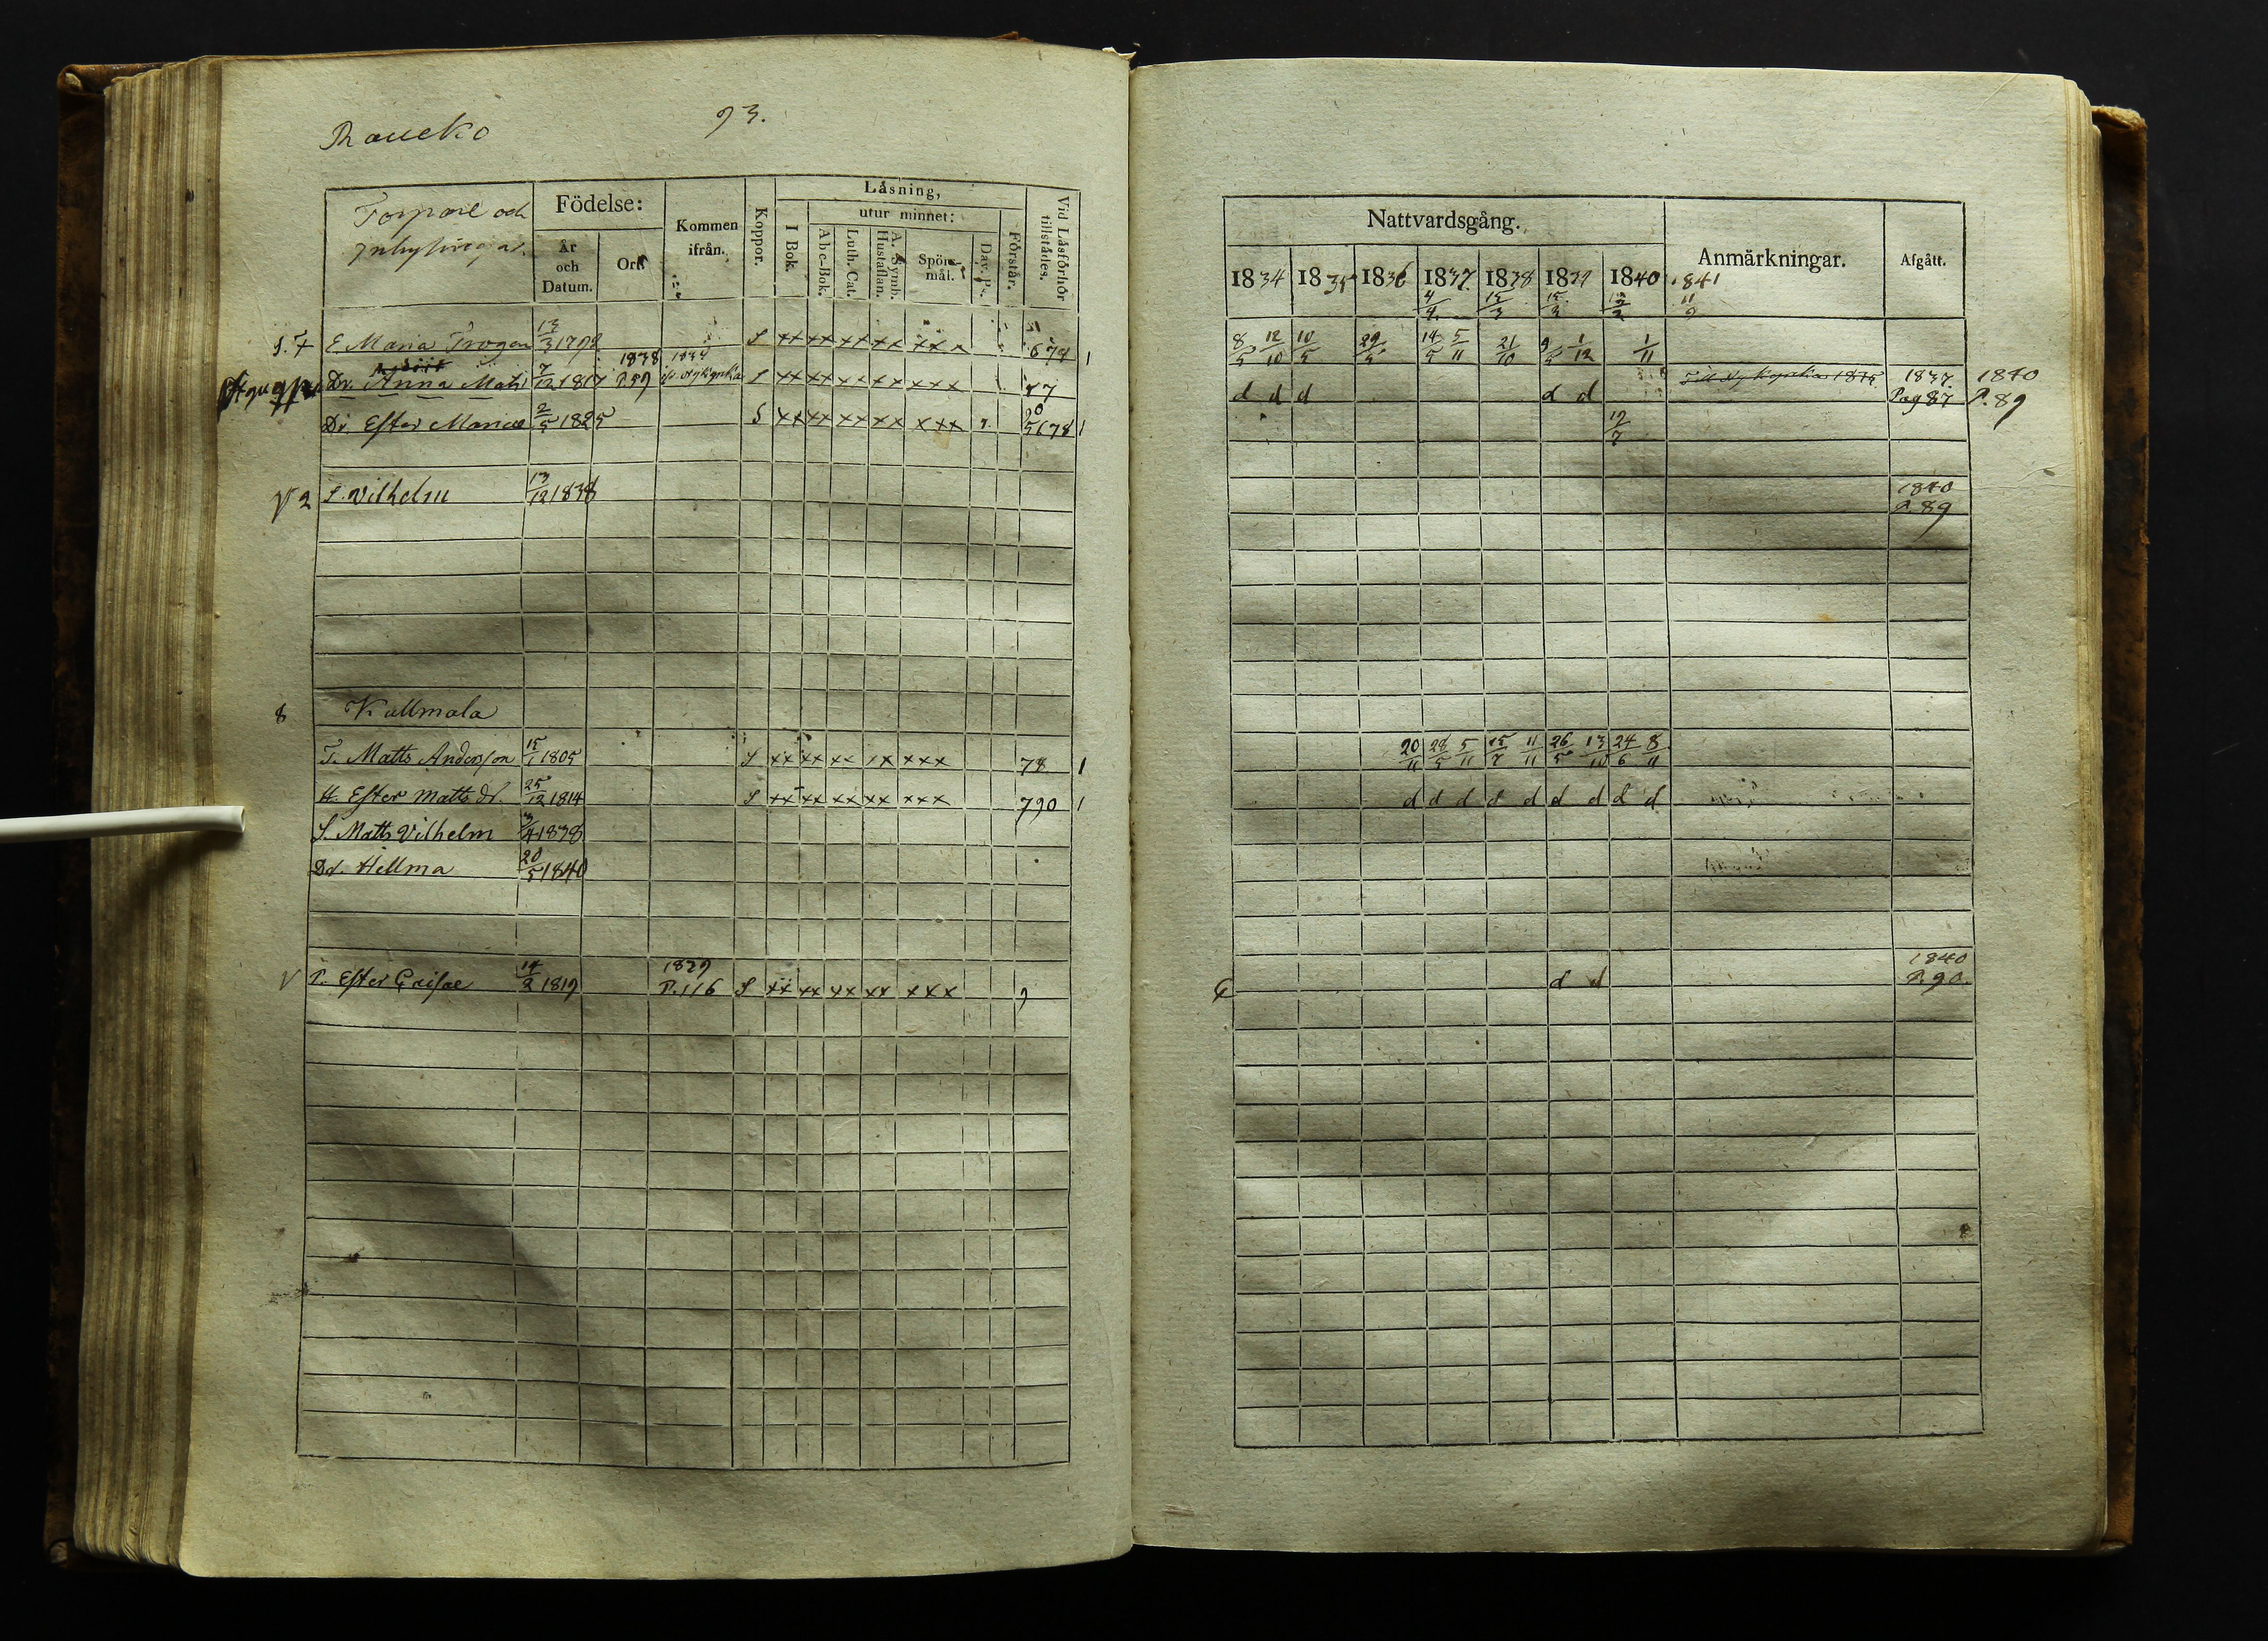 Raucko 93.
Torpare och
Inhysingar.
Födelse:
År
och
Datum.
Ort.
Kommen
ifrån.
Koppor.
Låsning,
I Bok.
utur minnet:
Abc-Bok.
Luth. Cat.
A. Symb.
Hustaflan.
Spörs-
mål.
Dav. Ps.
Förstår.
Vid Låsförhör
tillstådes.
E. Maria Trogen 13/3 1798 S xx xx xx xx xx x 678 1
Dr. Anna Maria 7/12 1817 1838 P.59 1834 S xx xx xx xx xxx 77
Dr. Ester Maria 2/5 1825 S xx xx xx xx xxx 5678 1
V 2 S. Vilhelm 13/12 1838
8 Kallmala
T. Matts Andersson 15/1 1805 S xx xx xx xx xxx 78 1
H. Ester Matts dr. 25/12 1814 S xx xx xx xx xxx 790 1
S. Matts Vilhelm 3/4 1838
Dr. Hellma 20/5 1840
V P. Ester Caisa 14/2 1819 1839 P.116 S xx xx xx xx xxx 9
Nattvardsgång.
Anmärkningar.
Afgått.
1834 1835 1836 1837 1838 1839 1840 1841
4/4 15/3 15/3 12/2 11/9
8/5 12/10 10/5 29/5 14/5 5/11 21/10 9/5 1/12 1/11
d d d d d Till Nykyrka 1835 1837. Pag 87 1840 P. 89
12/7
1840
P. 89
20/11 28/5 5/11 15/7 11/11 26/5 13/10 24/6 8/11
d d d d d d d d d
d d 1840
P. 90.